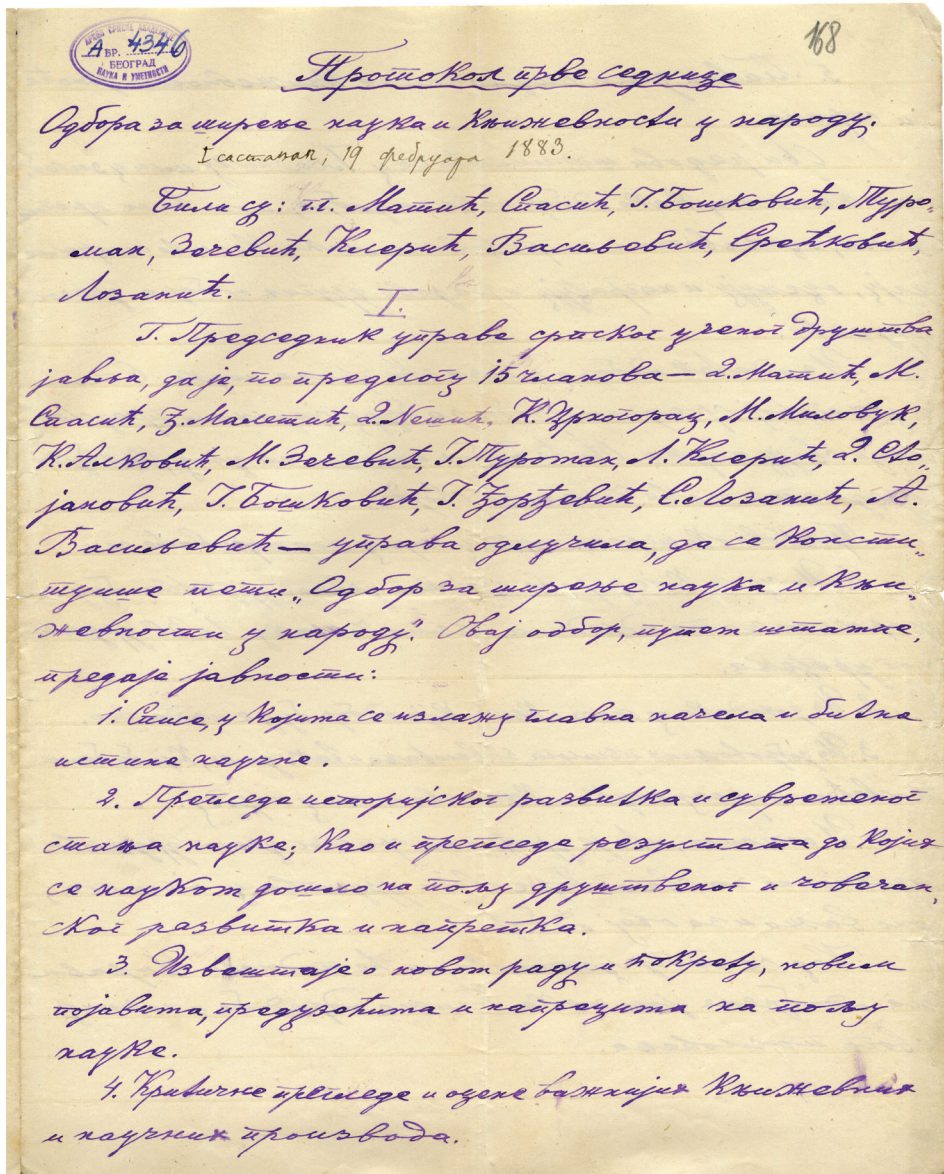 АРХИВ СРПСКЕ АКАДЕМИЈЕ
А БР. 4346
БЕОГРАД
НАУКА И УМЕТНОСТИ
168
Протокол прве седнице
Одбора за ширење наука и књижевности у народу.
I састанак, 19 фебруара 1883.
Били су: гг. Матић, Спасић, Ј. Бошковић, Туро-
ман, Зечевић, Клерић, Васиљевић, Срећковић,
Лозанић.
I.
Г. Председник управе српског ученог друштва
јавља, да је, по предлогу 15 чланова — Д. Матић, М.
Спасић, Ђ. Малетић, Д. Нешић, К. Црногорац, М. Миловук,
К. Алковић, М. Зечевић, Ј. Туроман, Љ. Клерић, Д. Сто„
јановић, Ј. Бошковић, Ј. Ђорђевић, С. Лозанић, А.
Васиљевић — управа одлучила, да се консти„
туише пети „Одбор за ширење наука и књи„
жевности у народу“. Овај одбор, путем штампе,
предаје јавности:
1. Списе, у којима се излажу главна начела и битна
истине научне.
2. Прегледе историјског развитка и сувременог
стања науке; као и прегледе резултата до којих
се науком дошло на пољу друштвеног и човечан„
ског развитка и напретка.
3. Извештаје о новом раду и покрету, новим
појавима, предузећима и напрецима на пољу
науке.
4. Критичне прегледе и оцене важнијих књижевних
и научних производа.